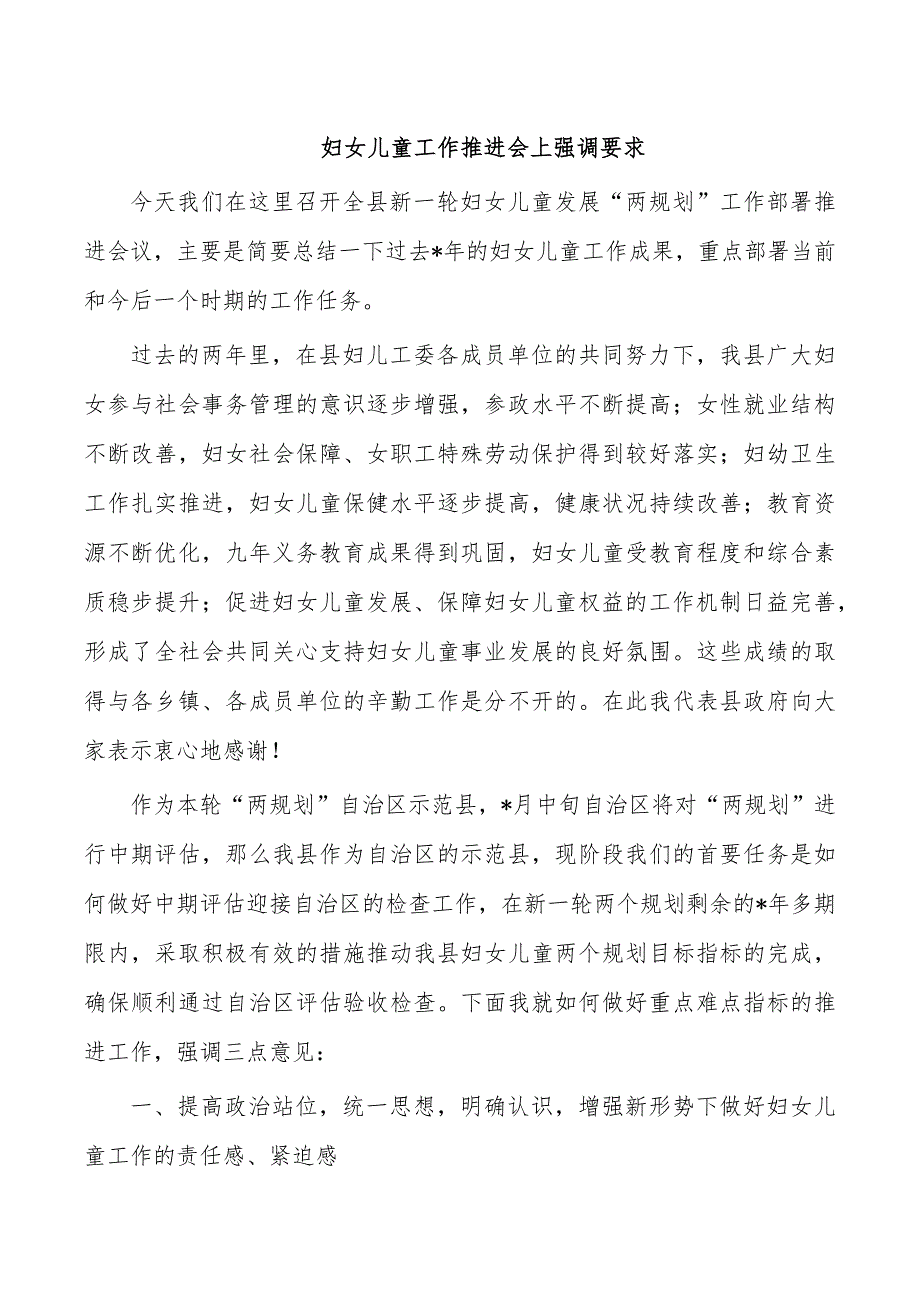 妇女儿童工作推进会上强调要求
今天我们在这里召开全县新一轮妇女儿童发展“两规划”工作部署推
进会议，主要是简要总结一下过去*年的妇女儿童工作成果，重点部署当前
和今后一个时期的工作任务。
过去的两年里，在县妇儿工委各成员单位的共同努力下，我县广大妇
女参与社会事务管理的意识逐步增强，参政水平不断提高；女性就业结构
不断改善，妇女社会保障、女职工特殊劳动保护得到较好落实；妇幼卫生
工作扎实推进，妇女儿童保健水平逐步提高，健康状况持续改善；教育资
源不断优化，九年义务教育成果得到巩固，妇女儿童受教育程度和综合素
质稳步提升；促进妇女儿童发展、保障妇女儿童权益的工作机制日益完善，
形成了全社会共同关心支持妇女儿童事业发展的良好氛围。这些成绩的取
得与各乡镇、各成员单位的辛勤工作是分不开的。在此我代表县政府向大
家表示衷心地感谢！
作为本轮“两规划”自治区示范县，*月中旬自治区将对“两规划”进
行中期评估，那么我县作为自治区的示范县，现阶段我们的首要任务是如
何做好中期评估迎接自治区的检查工作，在新一轮两个规划剩余的*年多期
限内，采取积极有效的措施推动我县妇女儿童两个规划目标指标的完成，
确保顺利通过自治区评估验收检查。下面我就如何做好重点难点指标的推
进工作，强调三点意见：
一、提高政治站位，统一思想，明确认识，增强新形势下做好妇女儿
童工作的责任感、紧迫感